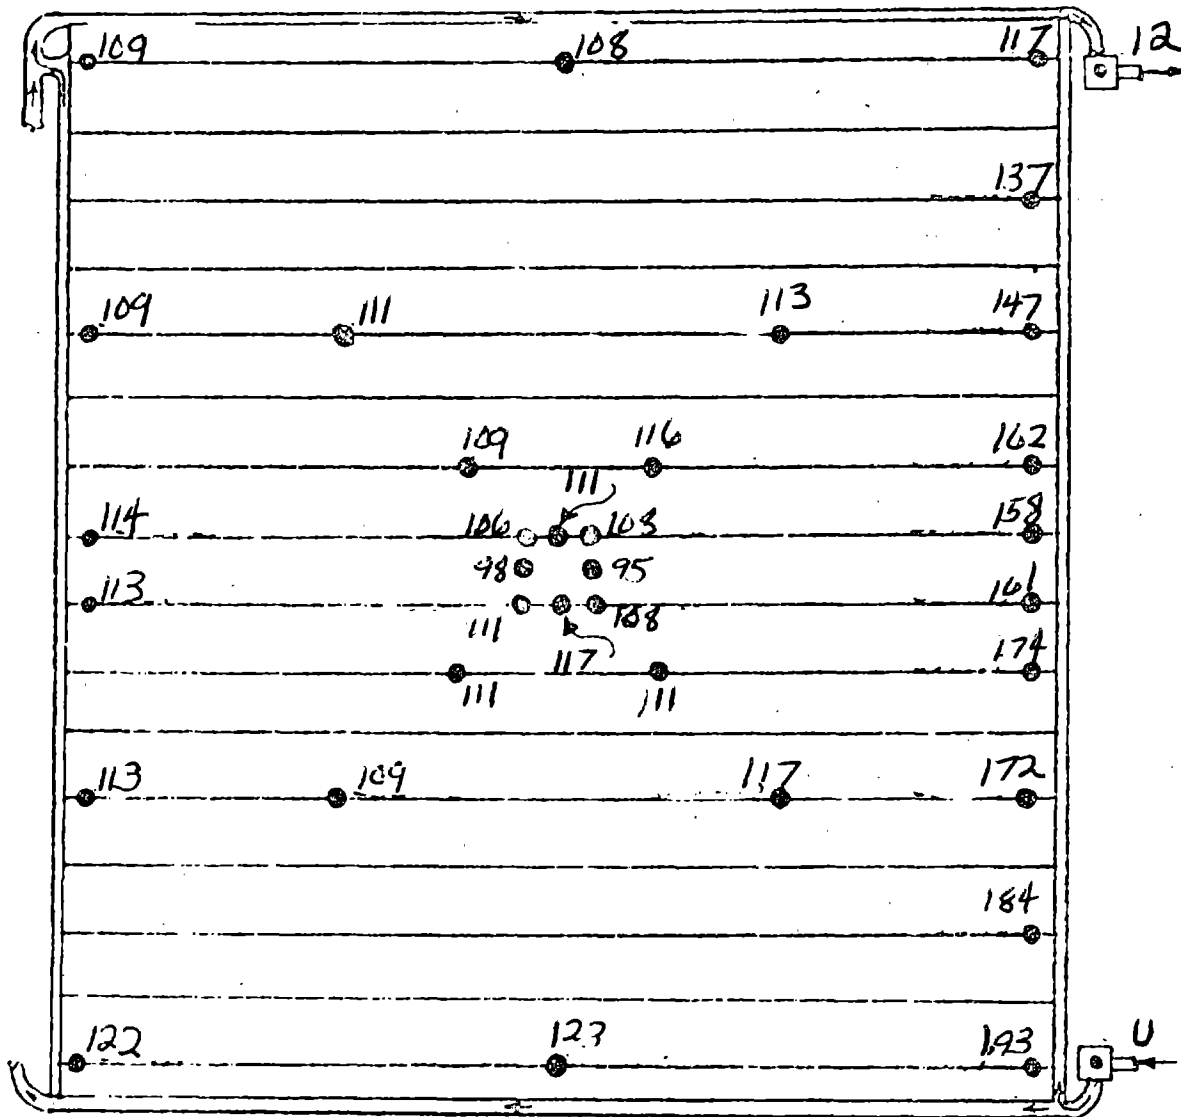 109 108 117 12
137
109 111 113 147
109 116 162
111
114 106 103 158
98 95
113 161
111 108
117 174
111 111
113 109 117 172
184
U
122 123 193